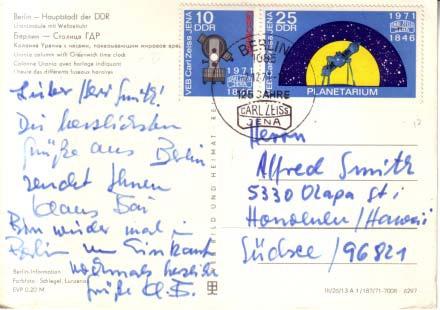 Berlin – Hauptstadt der DDR
Uraniasäule mit Weltzeituhr
Берлин – Столица ГДР
Колонна Урания с часами, показывающим мировое вре
Urania column with Greenwich time clock
Colonne Urania avec horloge indiquant
l'heure des différents fuseaux horaires
Lieber Herr Smitz!
Die herzlichsten
Grüße aus Berlin
sendet Ihnen
Klaus
Bin wieder mal in
Berlin zum Einkauf
nochmals herzliche
Grüße
Berlin-Information
Farbfoto: Schlegel, Lunzenau
EVP 0,20 M
BILD UND HEIMAT
10 DDR
VEB Carl Zeiss JENA
1971
1846
25 DDR
VEB Carl Zeiss JENA
1971
1846
PLANETARIUM
BERLIN
1085
125 JAHRE
CARL ZEISS
JENA
Herrn
Alfred Smitz
5330 Olapa St
Honolulu/Hawaii
Südsee/96821